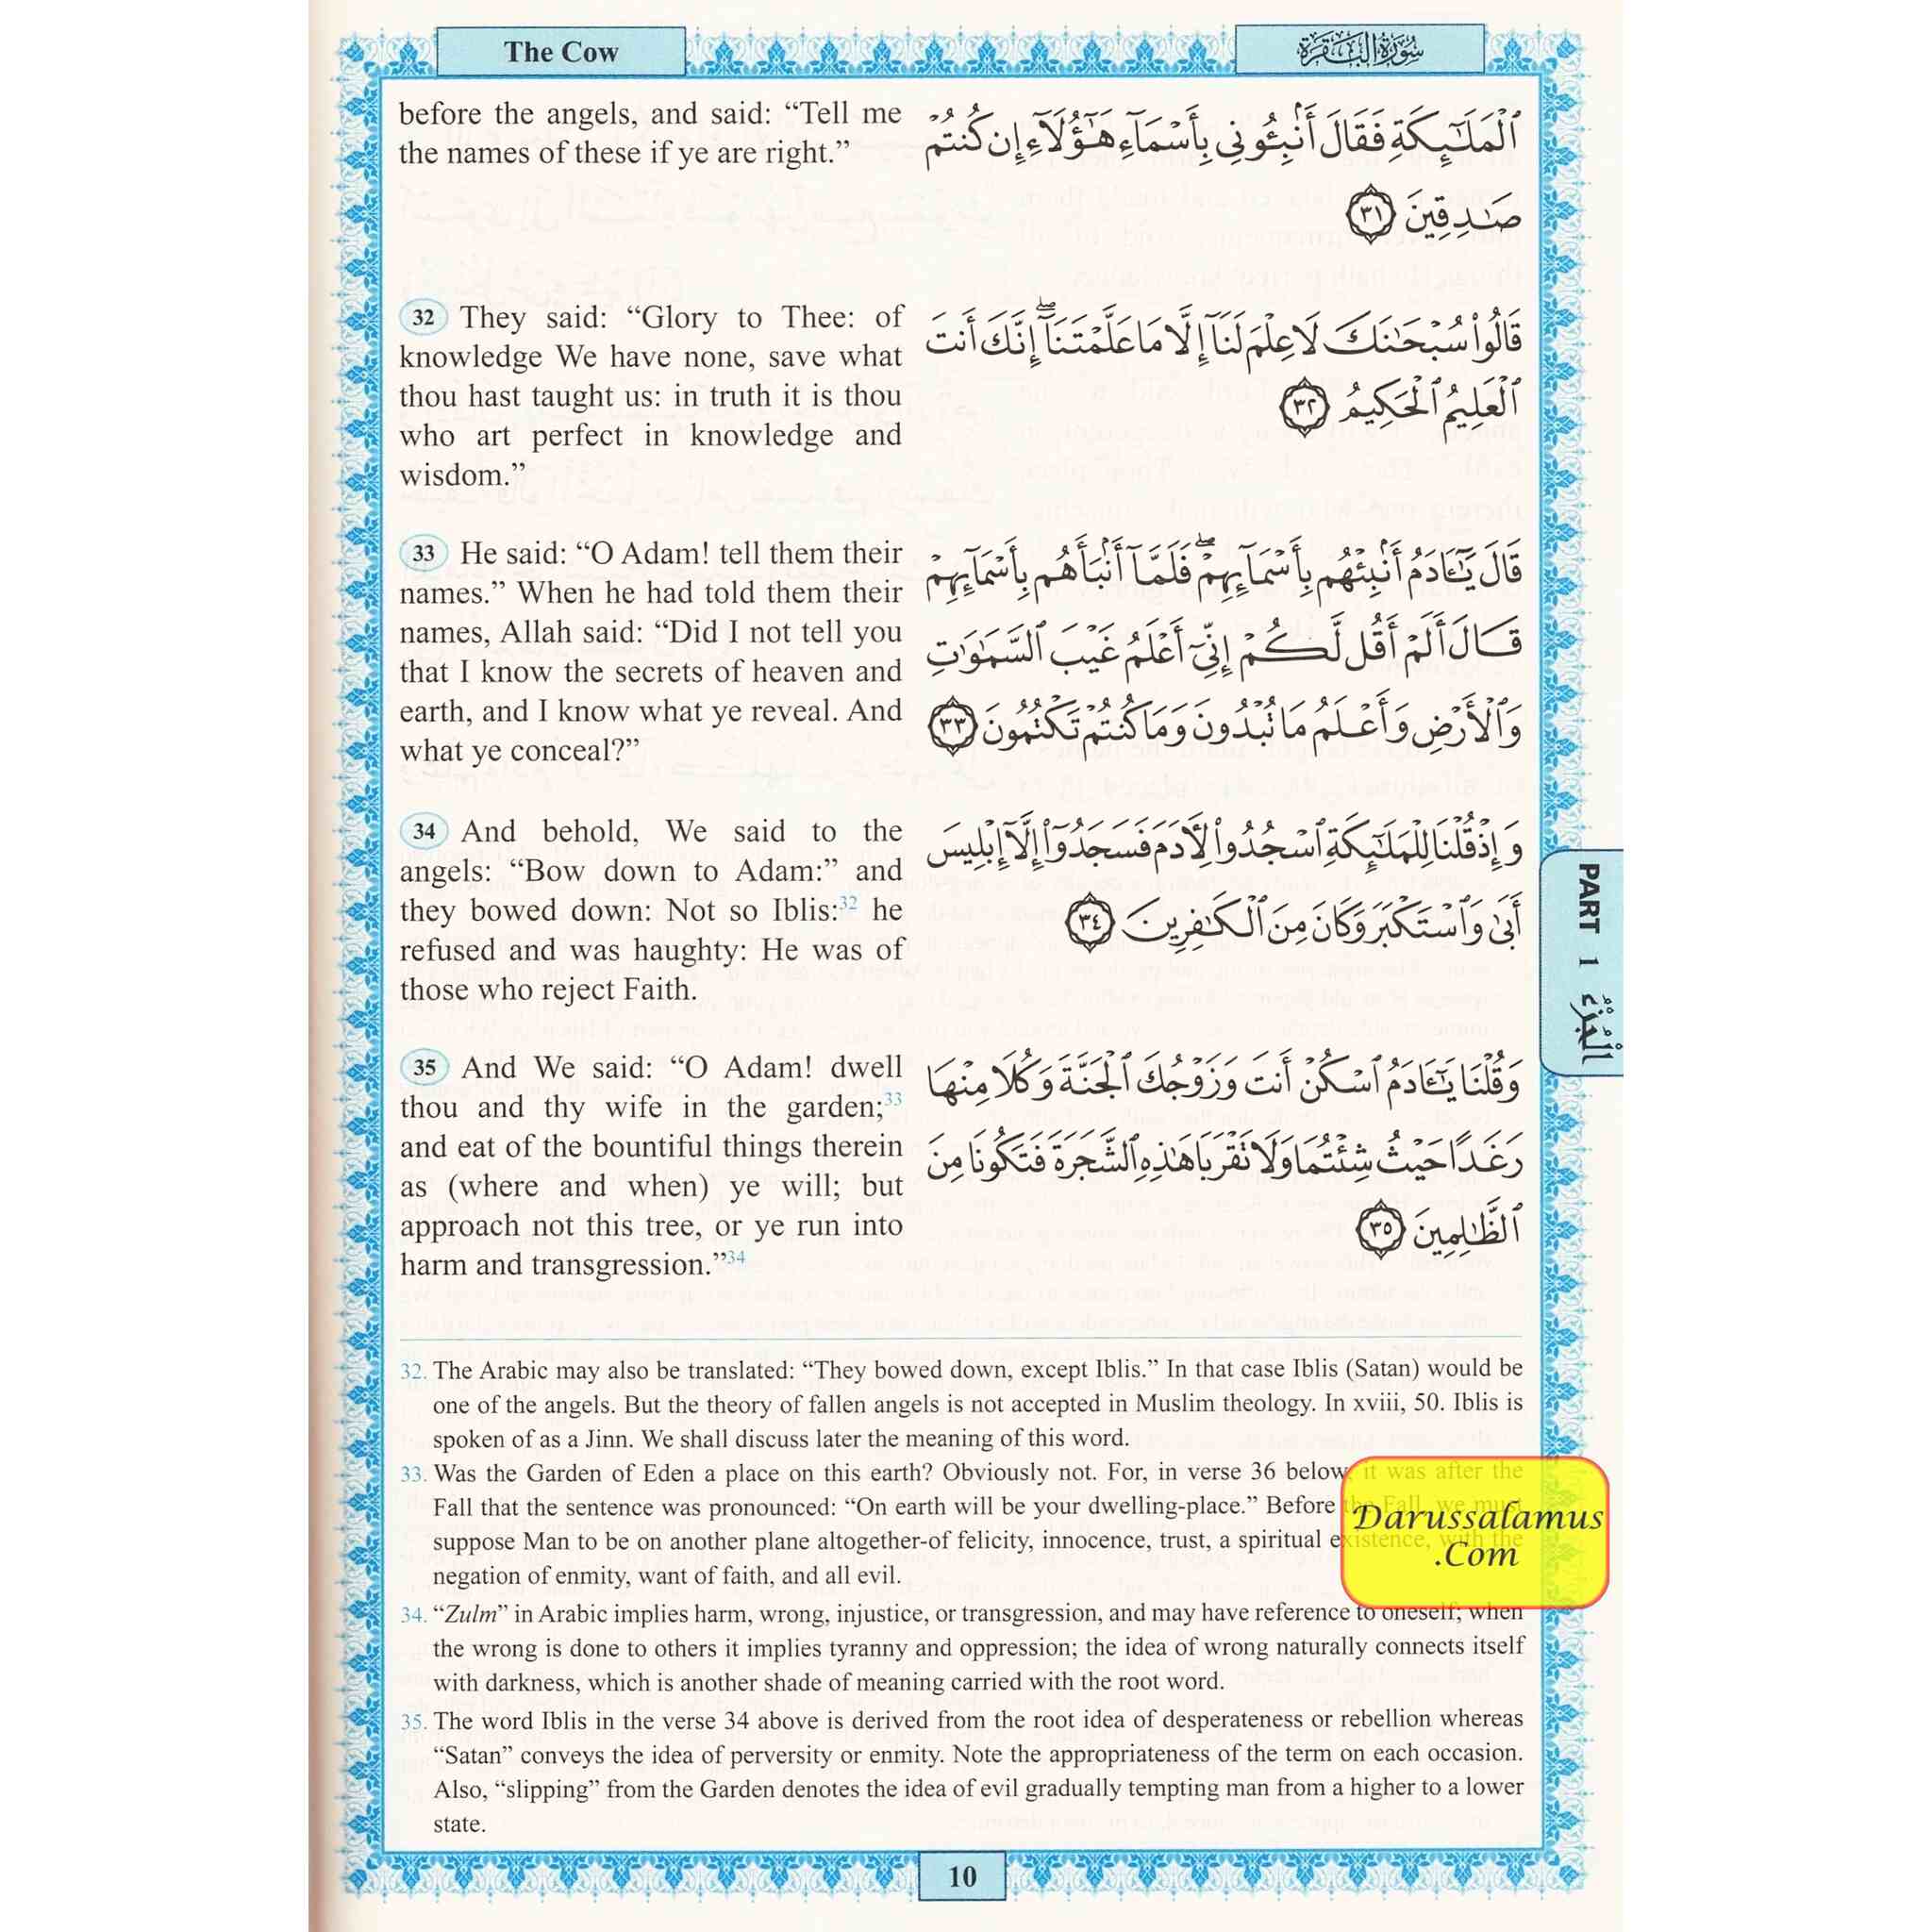 The Cow
سُورَةُ البَقَرَةِ
before the angels, and said: “Tell me
the names of these if ye are right.”
ٱلْمَلَـٰٓئِكَةِ فَقَالَ أَنۢبِـُٔونِى بِأَسْمَآءِ هَـٰٓؤُلَآءِ إِن كُنتُمْ
صَـٰدِقِينَ ٣١
32 They said: “Glory to Thee: of
knowledge We have none, save what
thou hast taught us: in truth it is thou
who art perfect in knowledge and
wisdom.”
قَالُوا۟ سُبْحَـٰنَكَ لَا عِلْمَ لَنَآ إِلَّا مَا عَلَّمْتَنَآ ۖ إِنَّكَ أَنتَ
ٱلْعَلِيمُ ٱلْحَكِيمُ ٣٢
33 He said: “O Adam! tell them their
names.” When he had told them their
names, Allah said: “Did I not tell you
that I know the secrets of heaven and
earth, and I know what ye reveal. And
what ye conceal?”
قَالَ يَـٰٓـَٔادَمُ أَنۢبِئْهُم بِأَسْمَآئِهِمْ ۖ فَلَمَّآ أَنۢبَأَهُم بِأَسْمَآئِهِمْ
قَالَ أَلَمْ أَقُل لَّكُمْ إِنِّىٓ أَعْلَمُ غَيْبَ ٱلسَّمَـٰوَٰتِ
وَٱلْأَرْضِ وَأَعْلَمُ مَا تُبْدُونَ وَمَا كُنتُمْ تَكْتُمُونَ ٣٣
34 And behold, We said to the
angels: “Bow down to Adam:” and
they bowed down: Not so Iblis:32 he
refused and was haughty: He was of
those who reject Faith.
وَإِذْ قُلْنَا لِلْمَلَـٰٓئِكَةِ ٱسْجُدُوا۟ لِـَٔادَمَ فَسَجَدُوٓا۟ إِلَّآ إِبْلِيسَ
أَبَىٰ وَٱسْتَكْبَرَ وَكَانَ مِنَ ٱلْكَـٰفِرِينَ ٣٤
35 And We said: “O Adam! dwell
thou and thy wife in the garden;33
and eat of the bountiful things therein
as (where and when) ye will; but
approach not this tree, or ye run into
harm and transgression.”34
وَقُلْنَا يَـٰٓـَٔادَمُ ٱسْكُنْ أَنتَ وَزَوْجُكَ ٱلْجَنَّةَ وَكُلَا مِنْهَا
رَغَدًا حَيْثُ شِئْتُمَا وَلَا تَقْرَبَا هَـٰذِهِ ٱلشَّجَرَةَ فَتَكُونَا مِنَ
ٱلظَّـٰلِمِينَ ٣٥
PART 1 الْجُزْءُ
32. The Arabic may also be translated: “They bowed down, except Iblis.” In that case Iblis (Satan) would be
one of the angels. But the theory of fallen angels is not accepted in Muslim theology. In xviii, 50. Iblis is
spoken of as a Jinn. We shall discuss later the meaning of this word.
33. Was the Garden of Eden a place on this earth? Obviously not. For, in verse 36 below, it was after the
Fall that the sentence was pronounced: “On earth will be your dwelling-place.” Before the Fall, we must
suppose Man to be on another plane altogether-of felicity, innocence, trust, a spiritual existence, with the
negation of enmity, want of faith, and all evil.
34. “Zulm” in Arabic implies harm, wrong, injustice, or transgression, and may have reference to oneself; when
the wrong is done to others it implies tyranny and oppression; the idea of wrong naturally connects itself
with darkness, which is another shade of meaning carried with the root word.
35. The word Iblis in the verse 34 above is derived from the root idea of desperateness or rebellion whereas
“Satan” conveys the idea of perversity or enmity. Note the appropriateness of the term on each occasion.
Also, “slipping” from the Garden denotes the idea of evil gradually tempting man from a higher to a lower
state.
Darussalamus
.Com
10